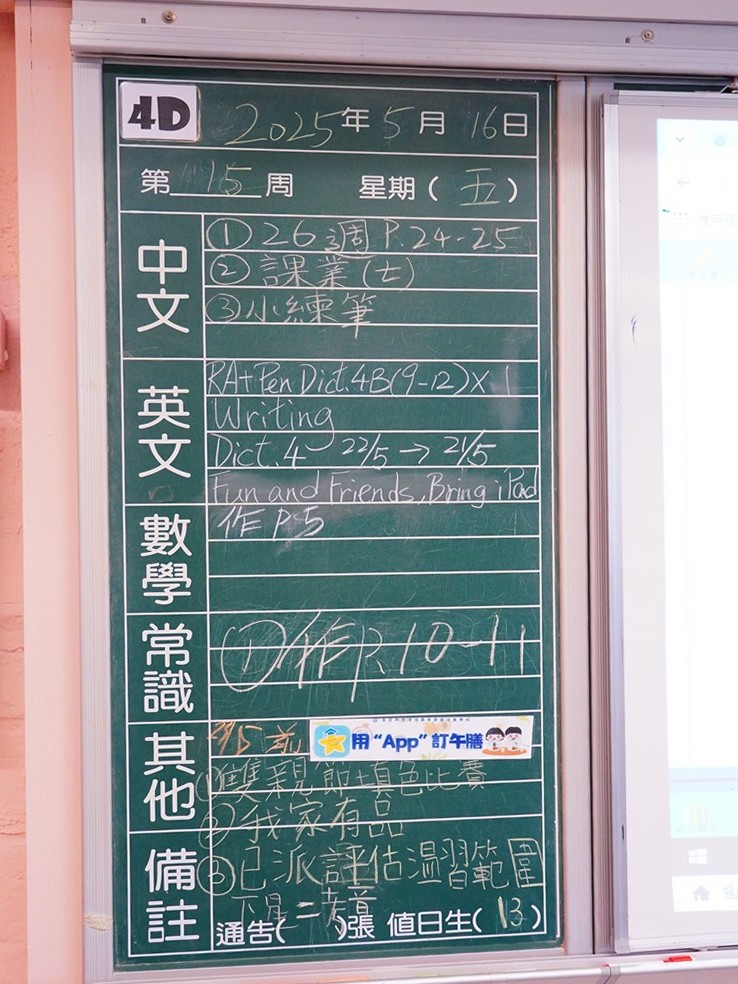 4D 2025年5月16日
第 15 周 星期(五)
中文
① 26週 P.24-25
② 課業(七)
③ 小練筆
英文
RA+Pen Dict.4B(9-12)×1
Writing
Dict.4 22/5 → 21/5
Fun and Friends, Bring iPad
數學
作 P.5
常識
① 作 P.10-11
其他
前
用“App”訂午膳
① 雙親節+填色比賽
② 我家有品
備註
③ 已派評估溫習範圍
通告( )張 值日生(13)